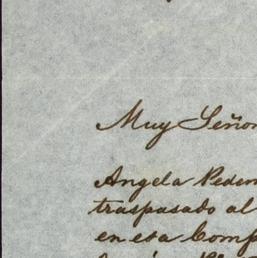 Muy Señor
Angela
traspasado al
en esta Comp